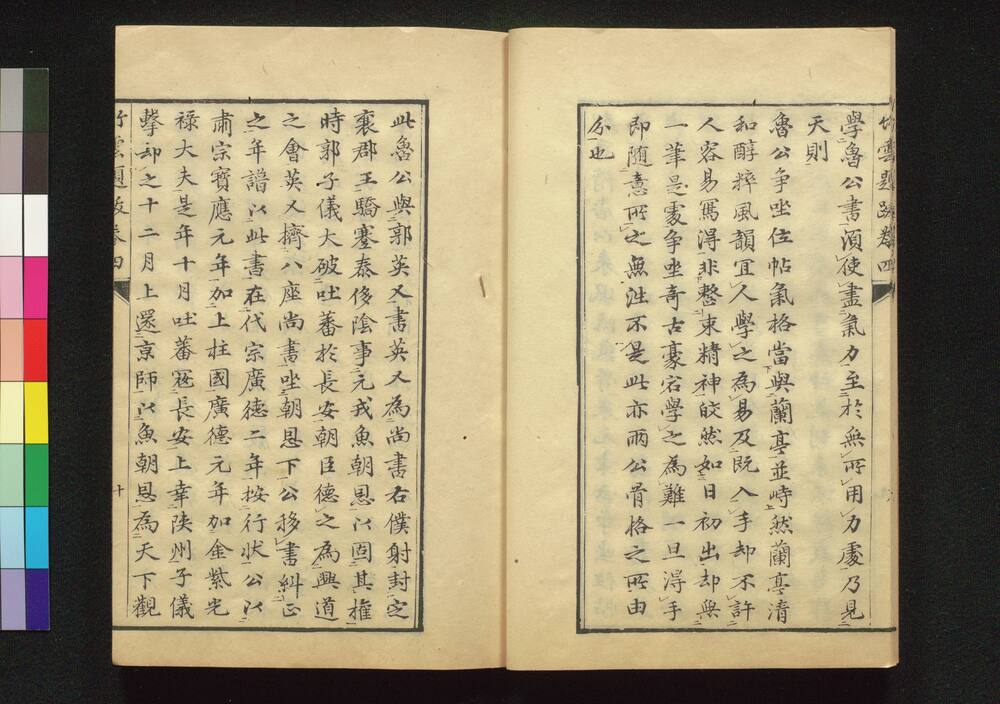 竹雲題跋卷四
學魯公書須使盡氣力至於無所用力處乃見
天則
魯公爭坐位帖氣格當與蘭亭並峙然蘭亭清
和醇粹風韻宜人學之為易及既入手却不許
人容易寫得非整束精神皎然如日初出却無
一筆是處爭坐奇古豪宕學之為難一旦得手
即隨意所之無往不是此亦兩公骨格之所由
分也
此魯公與郭英乂書英乂為尚書右僕射封定
襄郡王驕蹇泰侈陰事元戎魚朝恩以固其權
時郭子儀大破吐蕃於長安朝臣德之為興道
之會英乂擠八座尚書坐朝恩下公移書糾正
之年譜以此書在代宗廣德二年按行狀公以
肅宗寶應元年加上柱國廣德元年加金紫光
祿大夫是年十月吐蕃寇長安上幸陝州子儀
擊却之十二月上還京師以魚朝恩為天下觀
竹雲題跋卷四
十